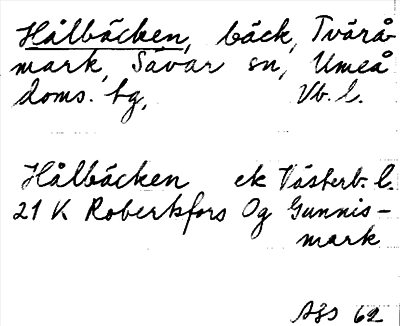 Hålbäcken, bäck, Tvärå-
mark, Sävar sn, Umeå
doms. tg, Vb. l.
Hålbäcken ek Västerb. l.
21 K Robertsfors Og Gunnis-
mark
ÄJS 62